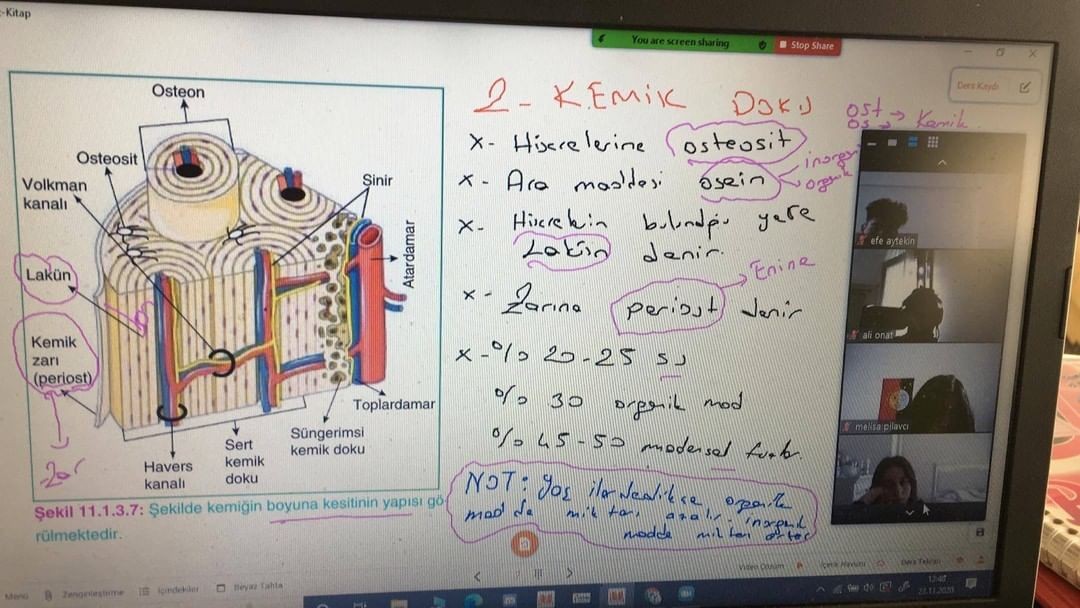 -Kitap
You are screen sharing
Stop Share
Ders Kaydı
Osteon
Osteosit
Volkman
kanalı
Sinir
Atardamar
Lakün
Kemik
zarı
(periost)
zar
Toplardamar
Süngerimsi
kemik doku
Sert
kemik
doku
Havers
kanalı
Şekil 11.1.3.7: Şekilde kemiğin boyuna kesitinin yapısı gö-
rülmektedir.
2 - KEMiK DOKU
ost → Kemik
os →
x- Hücrelerine osteosit
x- Ara maddesi osein
x- Hücrelerin bulunduğu yere
Lakün denir.
x- Zarına periost denir
→ Enine
x- % 20-25 su
% 30 organik mad
% 45-50 madensel
NOT: Yaş ilerledikçe organik
mad de miktarı azalır. inorganik
madde miktarı artar
efe aytekin
ali onat
melisa pilavcı
Menü
Zenginleştirme
İçindekiler
Beyaz Tahta
Video Çözüm
İçerik Havuzu
Ders Tekrarı
12:40
23.11.2020